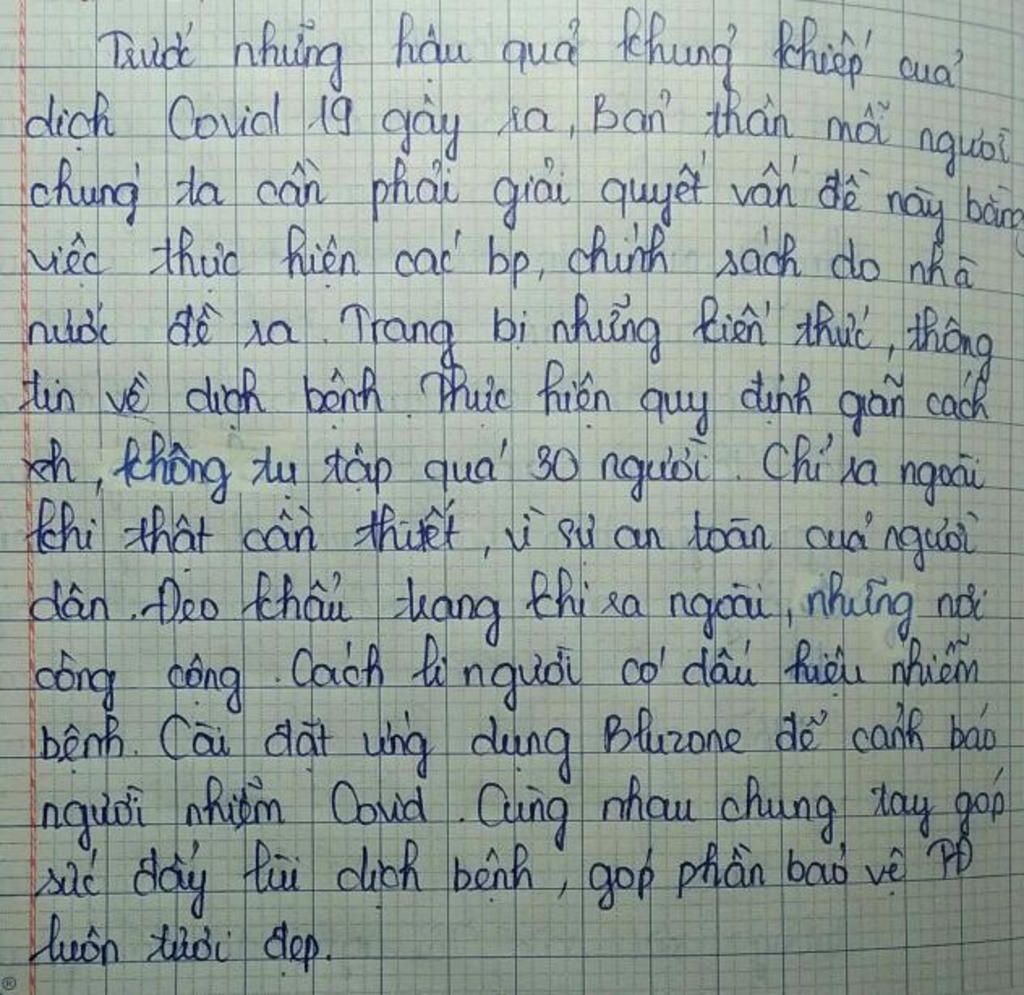 Trước những hậu quả khủng khiếp của
dịch Covid 19 gây ra, Bản thân mỗi người
chúng ta cần phải giải quyết vấn đề này bằng
việc thực hiện các bp, chính sách do nhà
nước đề ra. Trang bị những kiến thức, thông
tin về dịch bệnh. Thực hiện quy định giãn cách
xh, không tụ tập quá 30 người. Chỉ ra ngoài
khi thật cần thiết, vì sự an toàn của người
dân. Đeo khẩu trang khi ra ngoài, những nơi
công cộng. Cách li người có dấu hiệu nhiễm
bệnh. Cài đặt ứng dụng Bluzone để cảnh báo
người nhiễm Covid. Cùng nhau chung tay góp
sức đẩy lùi dịch bệnh, góp phần bảo vệ TĐ
luôn tươi đẹp.
®